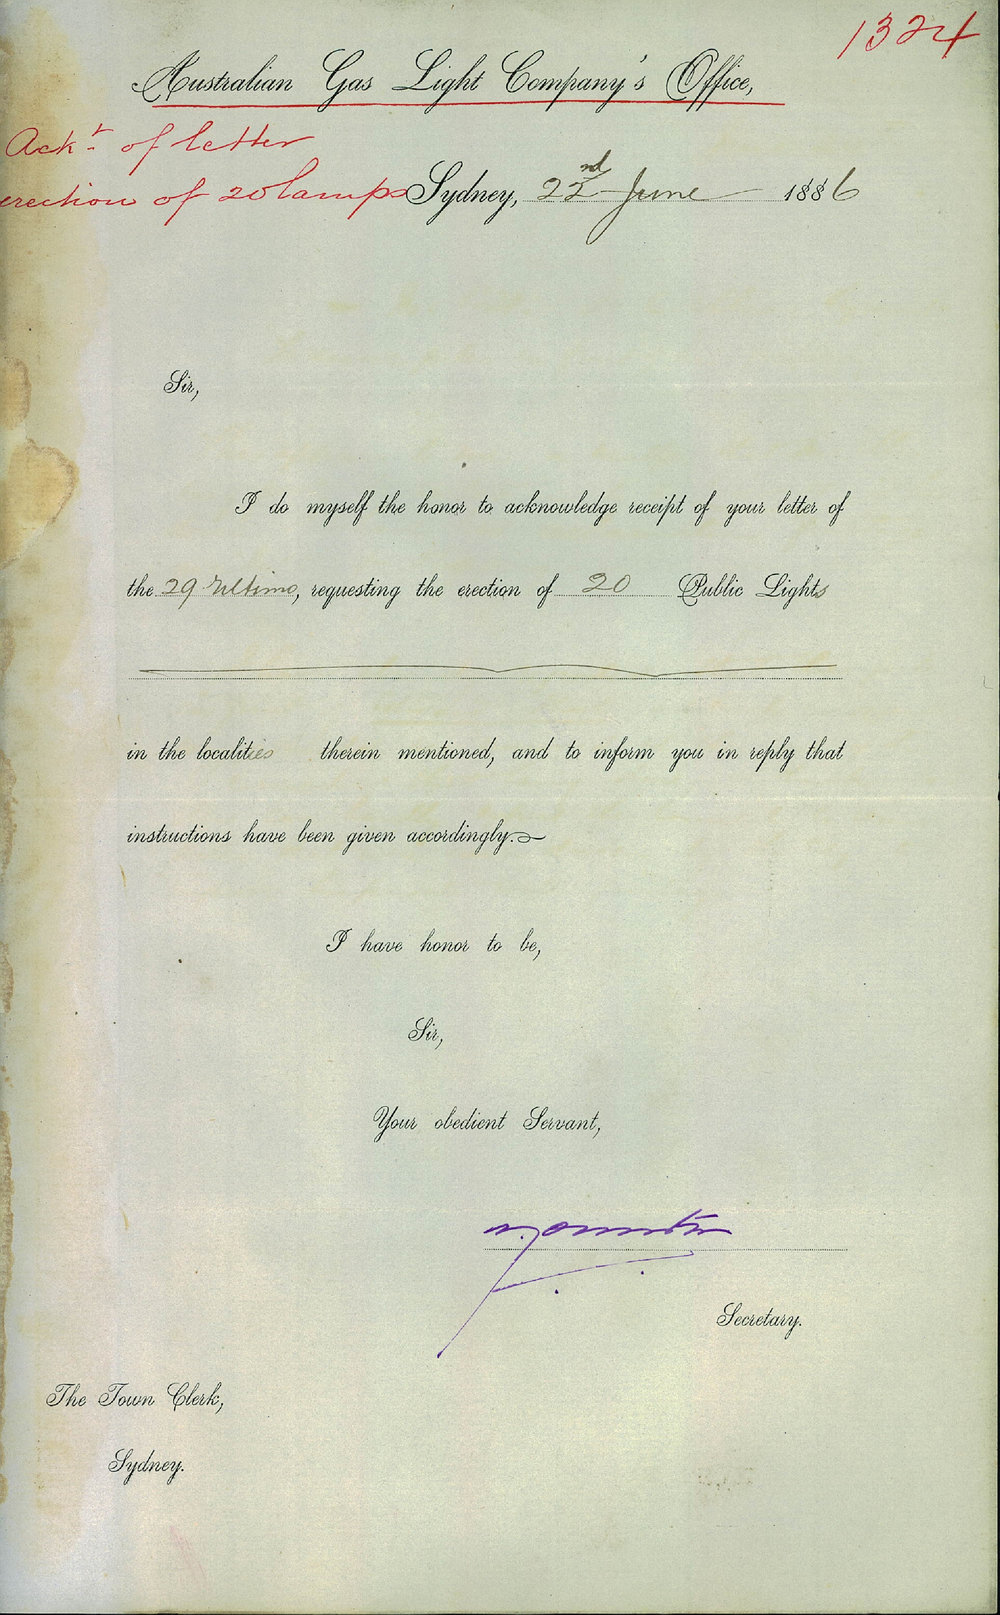 1324
Australian Gas Light Company's Office,
Ackt. of letter
erection of 20 lamps
Sydney, 22nd June 1886
Sir,
I do myself the honor to acknowledge receipt of your letter of
the 29 Ultimo, requesting the erection of 20 Public Lights
in the localities therein mentioned, and to inform you in reply that
instructions have been given accordingly.
I have honor to be,
Sir,
Your obedient Servant,
Secretary.
The Town Clerk,
Sydney.